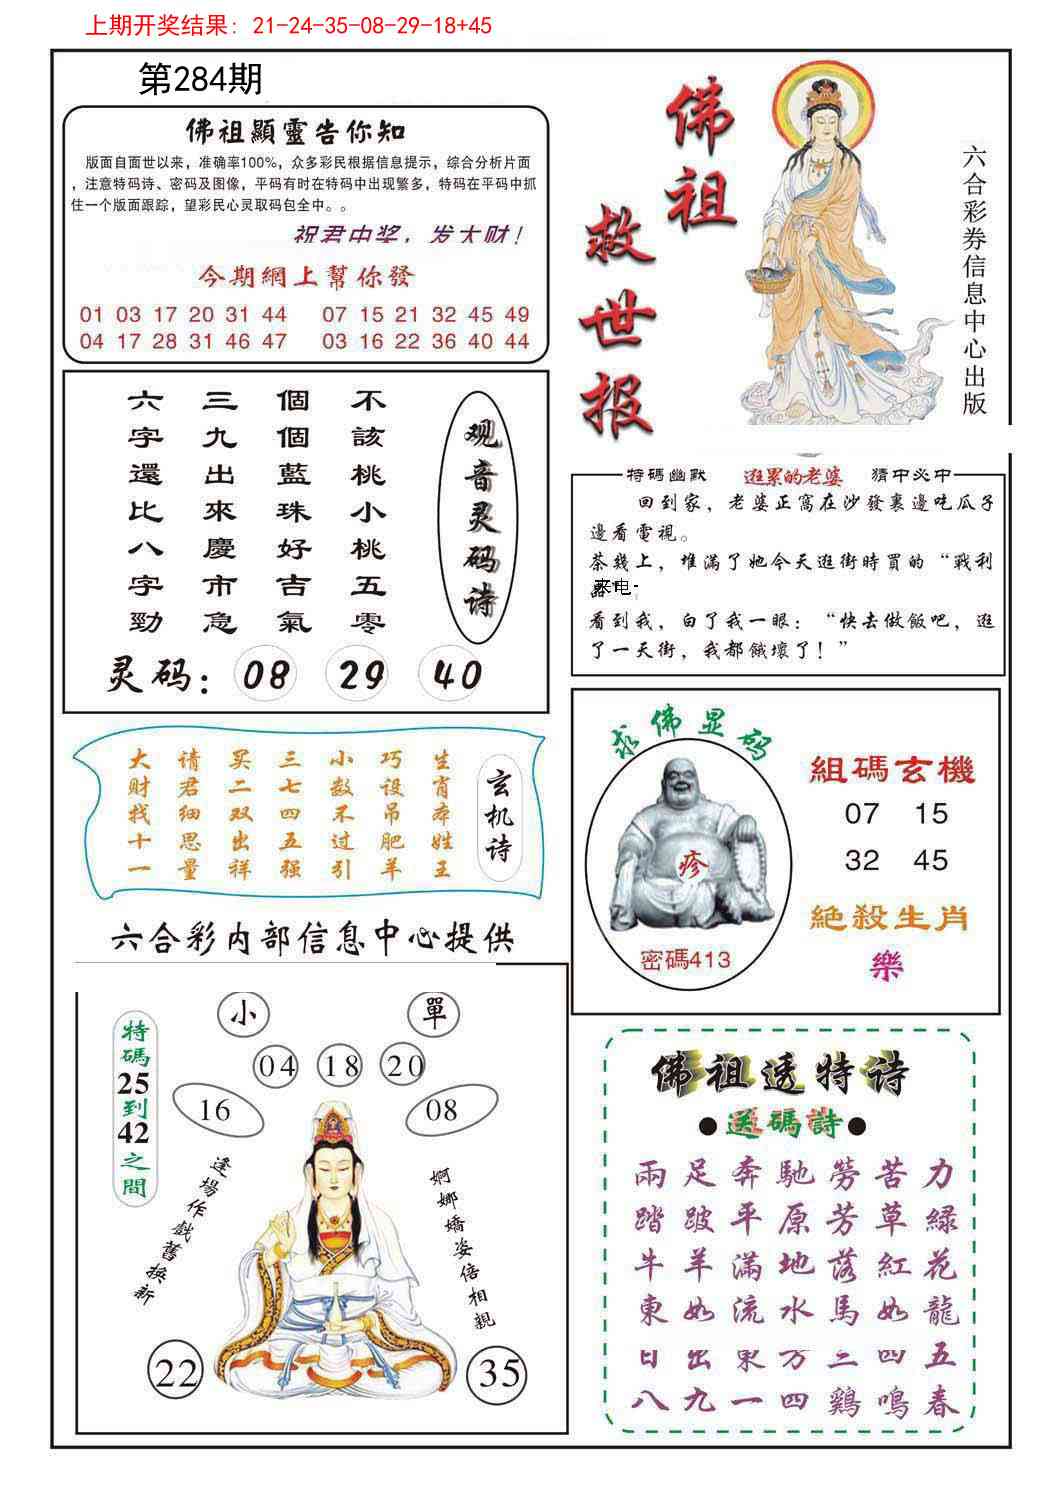 上期开奖结果: 21-24-35-08-29-18+45
第284期
佛祖顯靈告你知
版面自面世以来，准确率100%，众多彩民根据信息提示，综合分析片面
，注意特码诗、密码及图像，平码有时在特码中出现繁多，特码在平码中抓
住一个版面跟踪，望彩民心灵取码包全中。。
祝君中奖，发大财！
今期網上幫你發
01 03 17 20 31 44 07 15 21 32 45 49
04 17 28 31 46 47 03 16 22 36 40 44
佛祖
救世报
六合彩券信息中心出版
观音灵码诗
不該桃小桃五零
個個藍珠好吉氣
三九出來慶市急
六字還比八字勁
灵码：08 29 40
特碼幽默 逛累的老婆 猜中必中
回到家，老婆正窩在沙發裏邊吃瓜子
邊看電視。
茶幾上，堆滿了她今天逛街時買的“戰利
来电-
看到我，白了我一眼：“快去做飯吧，逛
了一天街，我都餓壞了！”
玄机诗
生肖本姓王
巧设吊肥羊
小数不过引
三七四五强
买二双出祥
请君细思量
大财找十一
求佛显码
疹
密碼413
組碼玄機
07 15
32 45
絕殺生肖
樂
六合彩内部信息中心提供
小 單
特碼25到42之間
04 18 20
16 08
逢場作戲舊換新
婀娜嬌姿倍相親
22 35
佛祖透特诗
●送碼詩●
兩足奔馳勞苦力
踏跛平原芳草緑
牛羊滿地落紅花
東如流水馬如龍
日出東方三四五
八九一四鷄鳴春